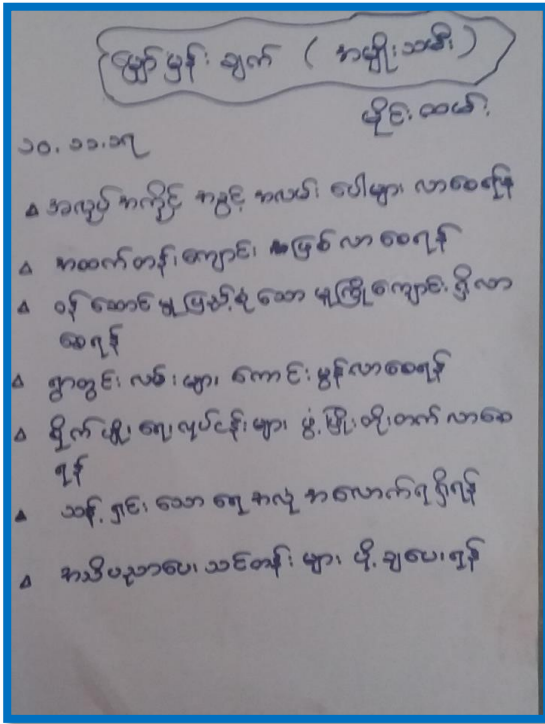 မျှော်မှန်းချက် ( အမျိုးသမီး )
မိုင်းထမ်း
၁၀.၁၁.၁၇
အလုပ် အကိုင် အခွင့် အလမ်း ပေါများ လာစေရန်
အထက်တန်းကျောင်း ဖြစ်လာစေရန်
ဝန်ဆောင်မှုပြည့်စုံသော မူကြိုကျောင်း ရှိလာ
စေရန်
ရွာတွင်း လမ်းများ ကောင်းမွန်လာစေရန်
စိုက်ပျိုးရေးလုပ်ငန်းများ ဖွံ့ဖြိုးတိုးတက်လာစေ
ရန်
သန့်ရှင်းသောရေ အလုံအလောက်ရရှိရန်
အသိပညာပေး သင်တန်းများ ပို့ချပေးရန်